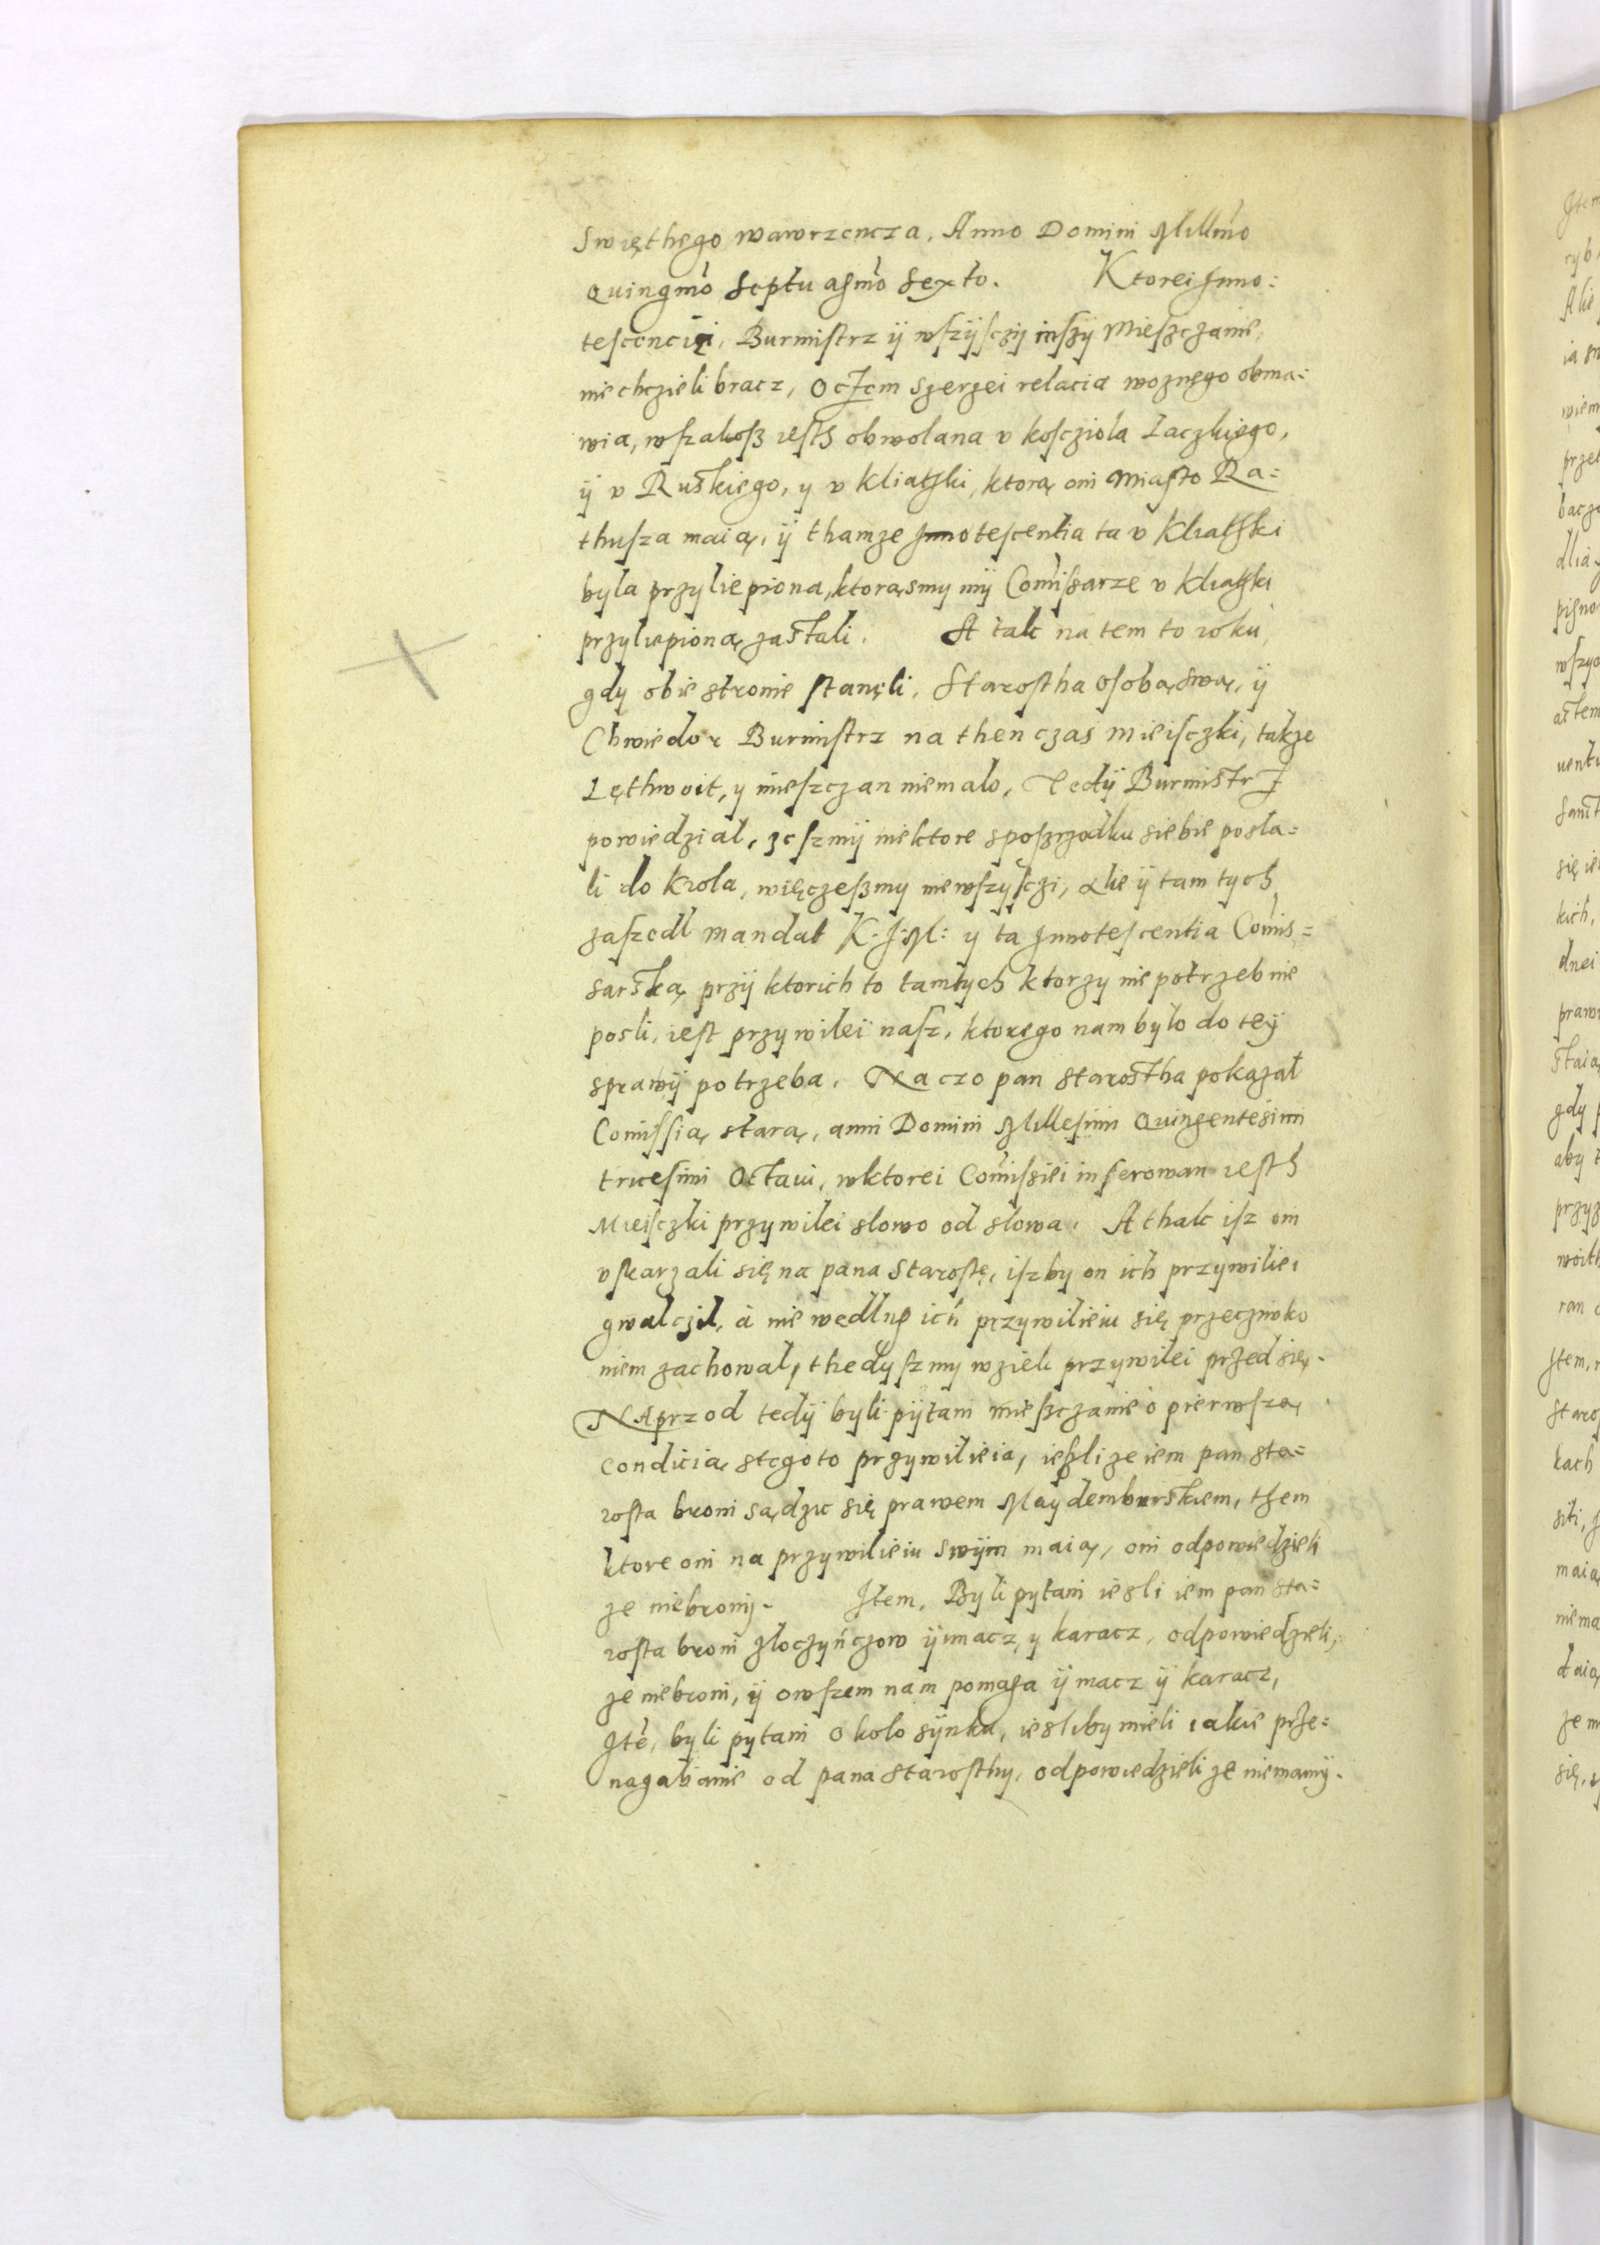 Swięthego wawrzencza, Anno Domini Millmo
Quingmo Septuagmo Sexto. Ktorei Inno:
tescencii, Burmistrz ÿ wszÿsczÿ inszÿ Mieszczanie,
nie chczieli bracz, oczem szerzei relacia woznego obma:
wia, wszakosz iesth obwolana v koscziola Laczkiego,
ÿ v Ruskiego, y v Kliathki, ktorą oni miasto Ra:
thusza maią, ÿ thamze Innotescentia ta v Kliathki
byla przyliepiona, ktorąsmy mÿ Comisarze v Kliathki
przyliepioną zastali. A tak na tem to roku,
gdy obie stronie stanęli, Starostha osobą swą, ÿ
Chwiedor Burmistrz na then czas mieisczki, takze
Lęthwoit, y mieszczan niemalo, Tedÿ Burmistrz
powiedzial, ze szmÿ niektore sposzrzodku siebie posla:
li do Krola, więczeszmy niewszysczi, alie ÿ tam tych
zaszedl mandat K: J: M: y ta Innotescentia Comis:
sarska, przÿ ktorich to tamtych ktorzy nie potrzebnie
posli, iest przywilei nasz, ktorego nam bylo do teÿ
sprawÿ potrzeba. Na czo pan starostha pokazal
Comissią starą, anni Domini Millesimi Quingentesimi
tricesimi Octaui, wktorei Comissiei inserowan iesth
Mieisczki przywilei slowo od slowa. A thak isz oni
vskarzali się na pana Starostę, iszby on ich przywiliei
gwalczil, a nie wedlug ich przywilieiu się przeczwko
niem zachowal, thedy szmy wzieli przywilei przed się.
NAprzod tedÿ byli pÿtani mieszczanie o pierwszą
condicią stego to przywilieia, ieszli ze iem pan sta:
rosta broni sądzic się prawem Maydemburskiem, them
ktore oni na przywilieiu swÿm maią, oni odpowiedzieli
ze niebronÿ. Item, Byli pytani iesli iem pan sta:
rosta broni zloczyńczow ÿmacz y karacz, odpowiedzieli,
ze niebroni, ÿ owszem nam pomaga ÿmacz ÿ karacz,
Itē, byli pytani okolo sÿnku, iesliby mieli iakie prze:
nagabanie od pana starosthy, odpowiedzieli ze niemamÿ.